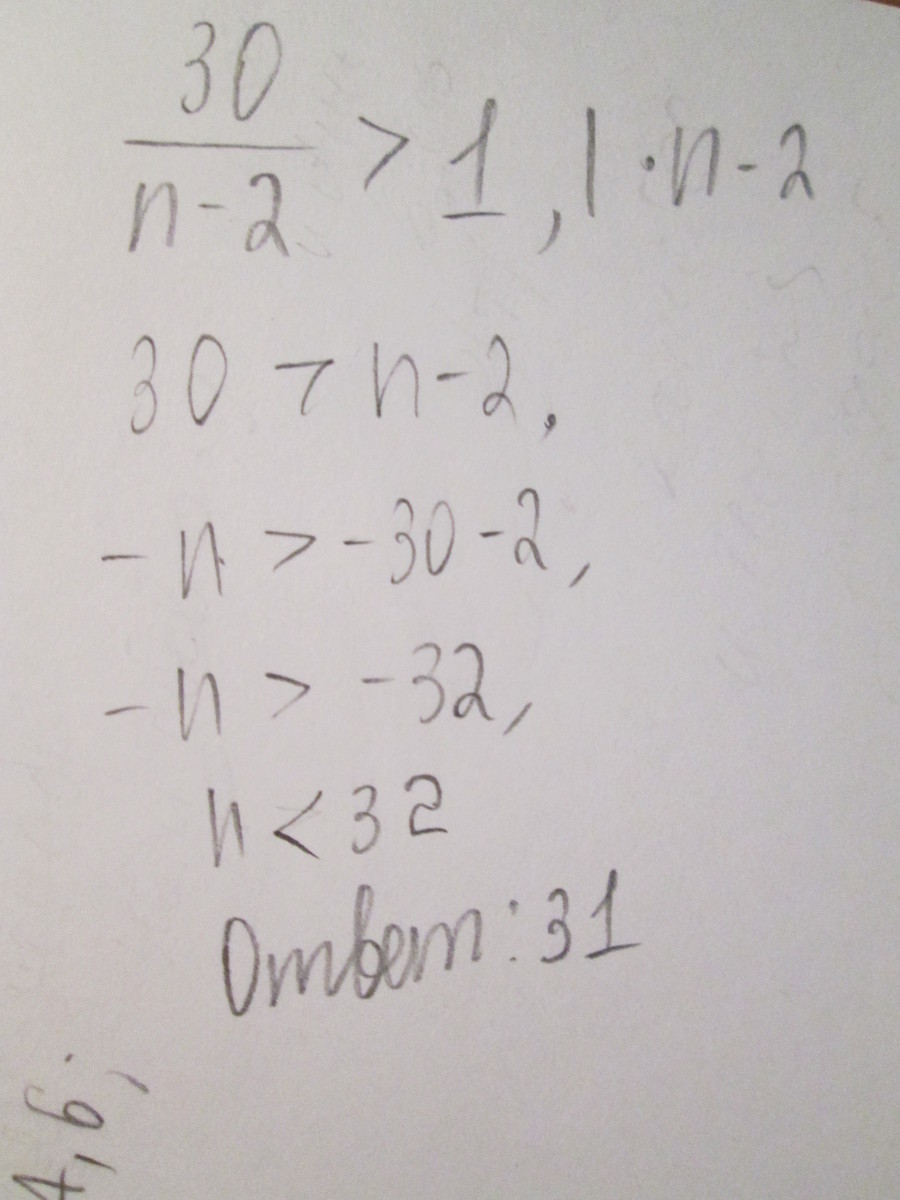 30/(n-2) > 1, | · n-2
30 > n-2.
-n > -30-2,
-n > -32,
n < 32
Ответ: 31
4,6;